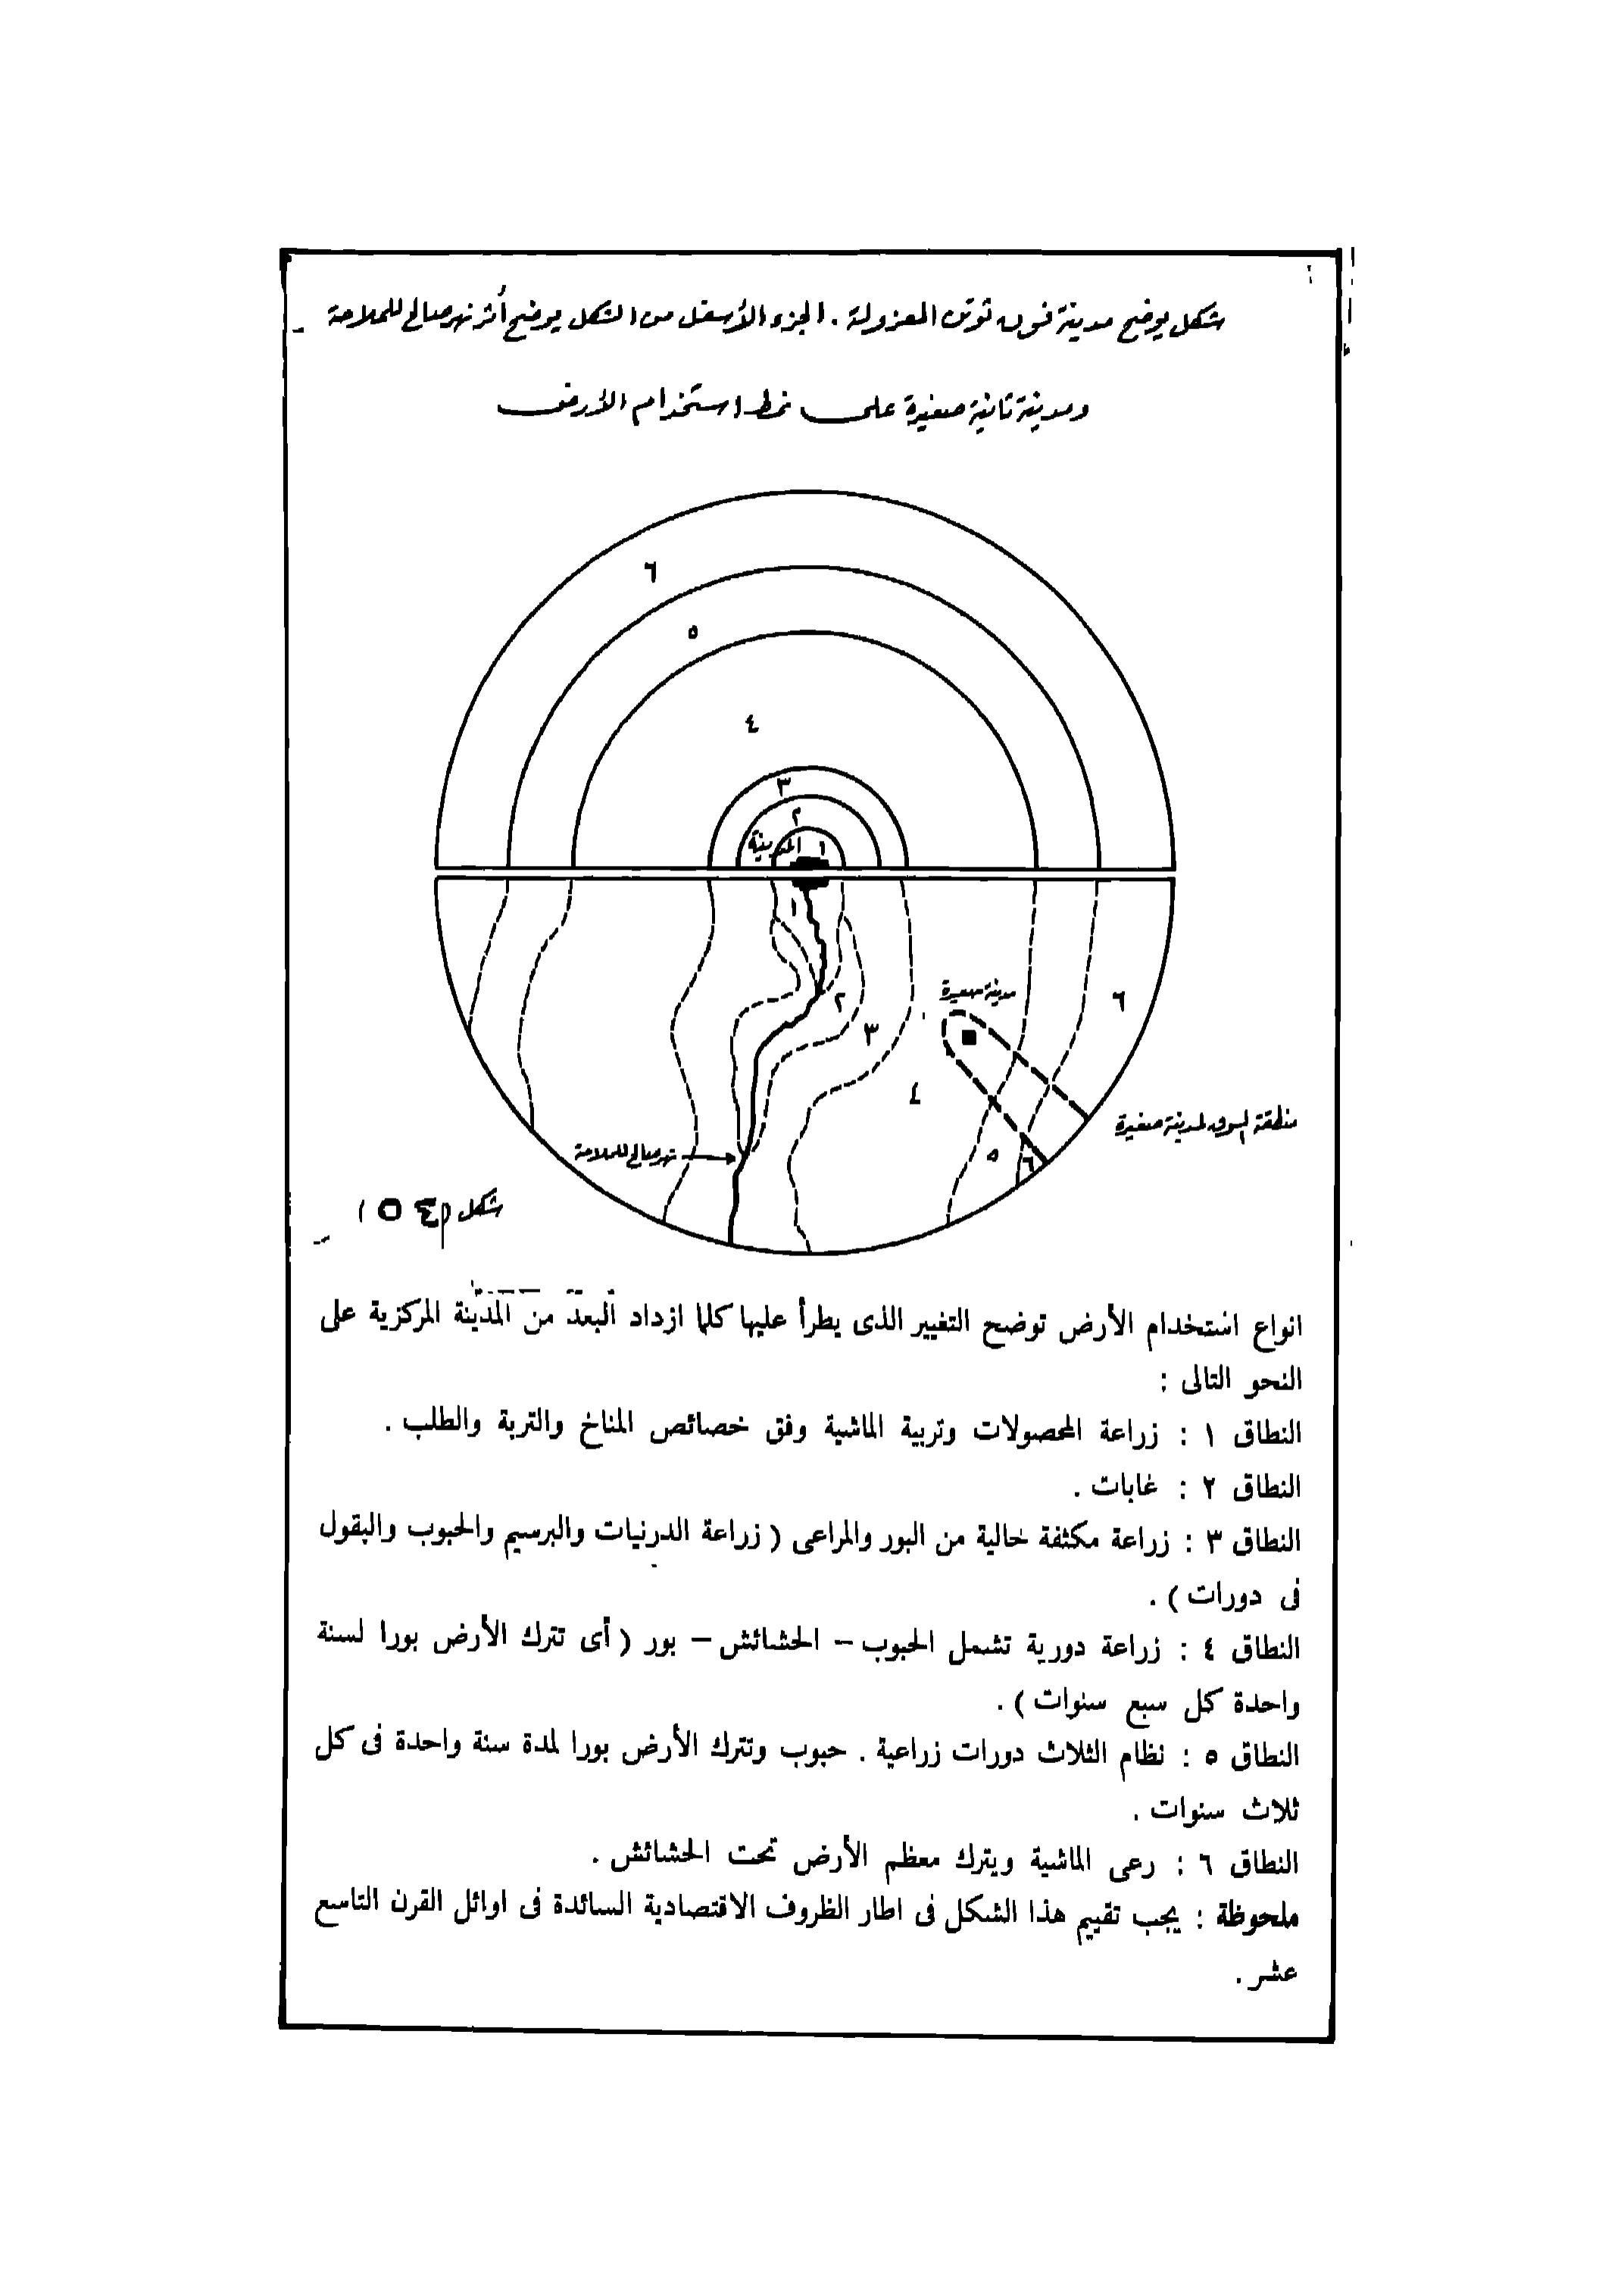 شكل يوضح مدينة فون ثونن المعزولة . الجزء الأسفل من الشكل يوضح أثر نهر صالح للملاحة
ومدينة ثانية صغيرة على نمط استخدام الأرض
٦
٥
٤
٣
٢
المدينة ١
١
مدينة صغيرة
٦
٢
٣
٤
منطقة السوق لمدينة صغيرة
نهر صالح للملاحة
٥
٦
شكل (٤٥)
انواع استخدام الأرض توضح التغيير الذى يطرأ عليها كلما ازداد البعد من المدينة المركزية على
النحو التالى :
النطاق ١ : زراعة المحصولات وتربية الماشية وفق خصائص المناخ والتربة والطلب .
النطاق ٢ : غابات .
النطاق ٣ : زراعة مكثفة خالية من البور والمراعى ( زراعة الدرنيات والبرسيم والحبوب والبقول
فى دورات ) .
النطاق ٤ : زراعة دورية تشمل الحبوب – الحشائش – بور ( أى تترك الأرض بورا لسنة
واحدة كل سبع سنوات ) .
النطاق ٥ : نظام الثلاث دورات زراعية . حبوب وتترك الأرض بورا لمدة سنة واحدة فى كل
ثلاث سنوات .
النطاق ٦ : رعى الماشية ويترك معظم الأرض تحت الحشائش .
ملحوظة : يجب تقييم هذا الشكل فى اطار الظروف الاقتصادية السائدة فى اوائل القرن التاسع
عشر .